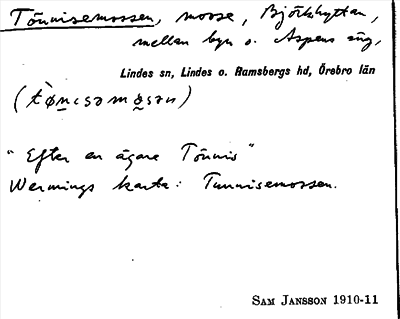 Tönnisemossen, mosse, Björkhyttan,
mellan byn o. Aspens äng,
Lindes sn, Lindes o. Ramsbergs hd, Örebro län
"Efter en ägare Tönnis"
Wermings karta: Tunnisemossen.
SAM JANSSON 1910-11